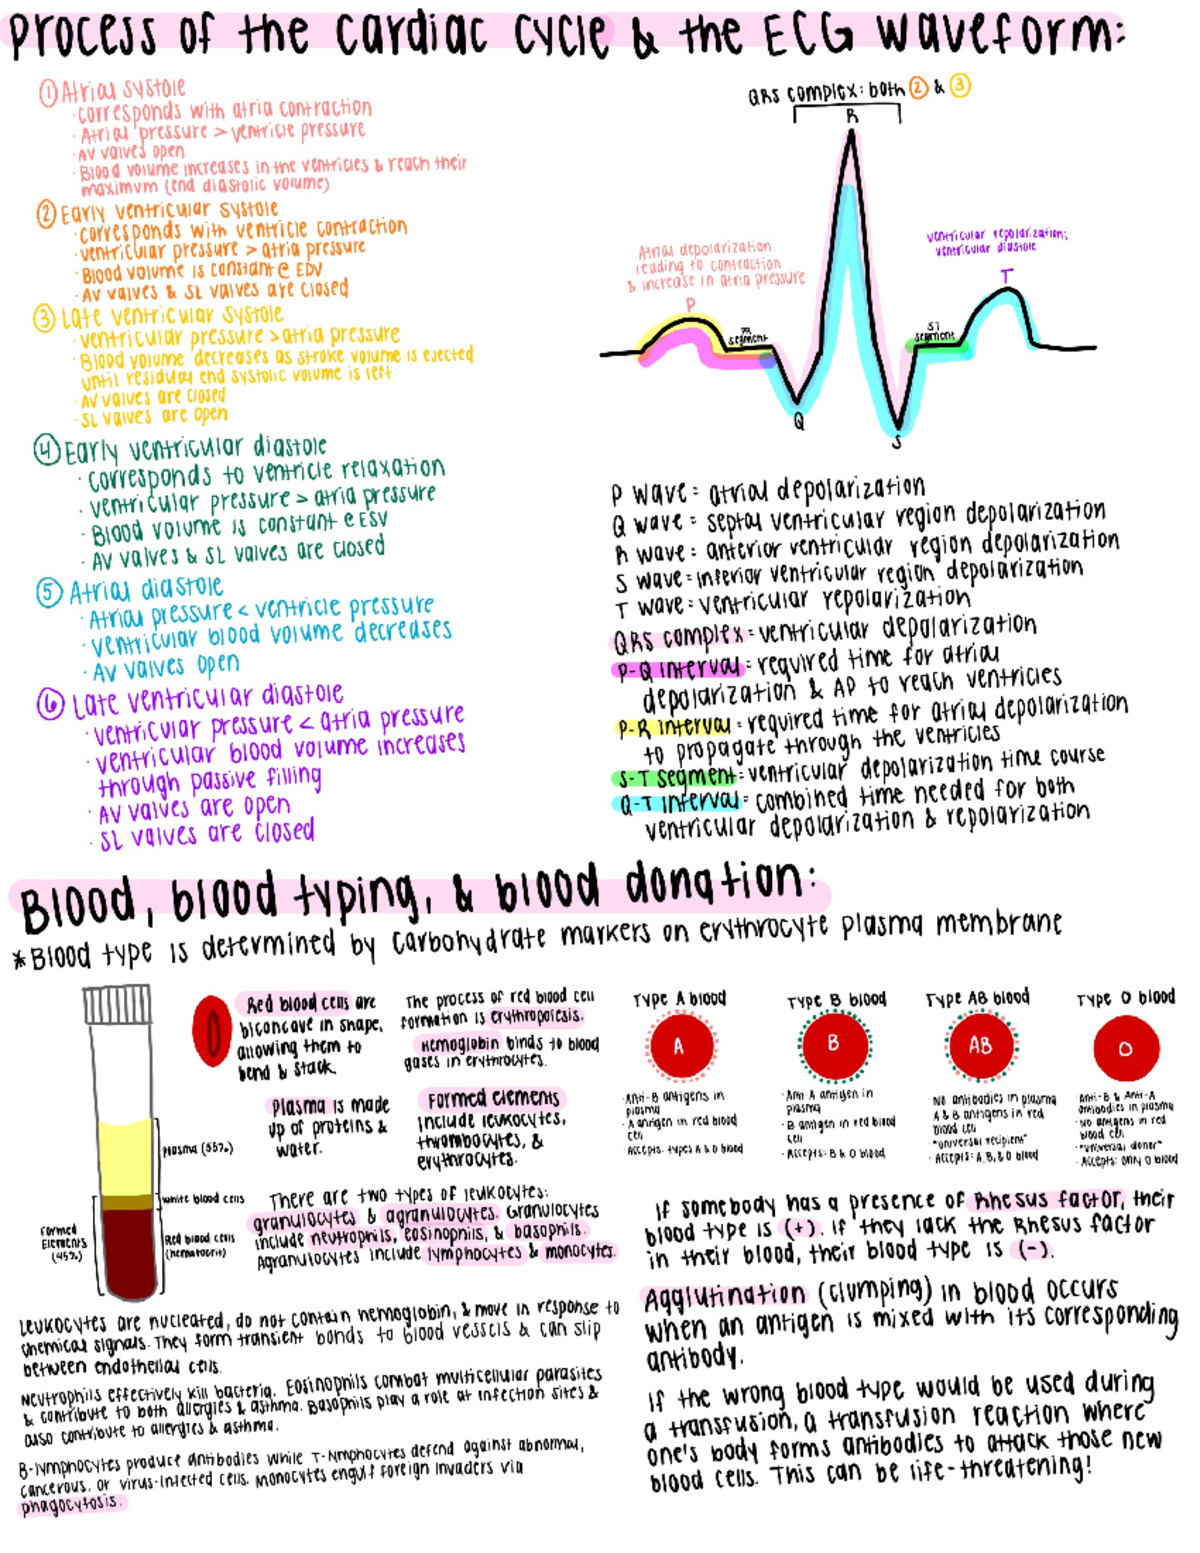 Process of the Cardiac Cycle & the ECG Waveform:
① Atrial systole
· corresponds with atria contraction
· Atrial pressure > ventricle pressure
· AV valves open
· Blood volume increases in the ventricles & reach their
maximum (end diastolic volume)
② Early ventricular systole
· corresponds with ventricle contraction
· ventricular pressure > atria pressure
· Blood volume is constant @ EDV
· AV valves & SL valves are closed
③ Late ventricular systole
· ventricular pressure > atria pressure
· Blood volume decreases as stroke volume is ejected
until residual end systolic volume is left
· AV valves are closed
· SL valves are open
④ Early ventricular diastole
· corresponds to ventricle relaxation
· ventricular pressure > atria pressure
· Blood volume is constant @ ESV
· AV valves & SL valves are closed
⑤ Atrial diastole
· Atrial pressure < ventricle pressure
· ventricular blood volume decreases
· AV valves open
⑥ Late ventricular diastole
· ventricular pressure < atria pressure
· ventricular blood volume increases
through passive filling
· AV valves are open
· SL valves are closed
QRS complex: both ② & ③
R
Atrial depolarization
leading to contraction
& increase in atria pressure
P
PR
segment
Q
S
ST
segment
ventricular repolarization;
ventricular diastole
T
P wave = atrial depolarization
Q wave = septal ventricular region depolarization
R wave = anterior ventricular region depolarization
S wave = inferior ventricular region depolarization
T wave = ventricular repolarization
QRS complex = ventricular depolarization
P-Q interval = required time for atrial
depolarization & AP to reach ventricles
P-R interval = required time for atrial depolarization
to propagate through the ventricles
S-T segment = ventricular depolarization time course
Q-T interval = combined time needed for both
ventricular depolarization & repolarization
Blood, blood typing, & blood donation:
*Blood type is determined by carbohydrate markers on erythrocyte plasma membrane
plasma (55%)
white blood cells
Red blood cells
(hematocrit)
Formed
Elements
(45%)
Red blood cells are
biconcave in shape,
allowing them to
bend & stack.
The process of red blood cell
formation is erythropoiesis.
Hemoglobin binds to blood
gases in erythrocytes.
Plasma is made
up of proteins &
water.
Formed elements
include leukocytes,
thrombocytes, &
erythrocytes.
There are two types of leukocytes:
granulocytes & agranulocytes. Granulocytes
include neutrophils, eosinophils, & basophils.
Agranulocytes include lymphocytes & monocytes.
Leukocytes are nucleated, do not contain hemoglobin, & move in response to
chemical signals. They form transient bonds to blood vessels & can slip
between endothelial cells.
Neutrophils effectively kill bacteria. Eosinophils combat multicellular parasites
& contribute to both allergies & asthma. Basophils play a role at infection sites &
also contribute to allergies & asthma.
B-lymphocytes produce antibodies while T-lymphocytes defend against abnormal,
cancerous, or virus-infected cells. Monocytes engulf foreign invaders via
phagocytosis.
Type A blood
A
· Anti-B antigens in
plasma
· A antigen in red blood
cell
· Accepts: types A & O blood
Type B blood
B
· Anti A antigen in
plasma
· B antigen in red blood
cell
· Accepts: B & O blood
Type AB blood
AB
· No antibodies in plasma
A & B antigens in red
blood cell
· "universal recipient"
· Accepts: A, B, & O blood
Type O blood
O
· Anti-B & Anti-A
antibodies in plasma
· No antigens in red
blood cell
· "universal donor"
· Accepts: only O blood
If somebody has a presence of Rhesus factor, their
blood type is (+). If they lack the Rhesus factor
in their blood, their blood type is (-).
Agglutination (clumping) in blood occurs
when an antigen is mixed with its corresponding
antibody.
If the wrong blood type would be used during
a transfusion, a transfusion reaction where
one's body forms antibodies to attack those new
blood cells. This can be life-threatening!